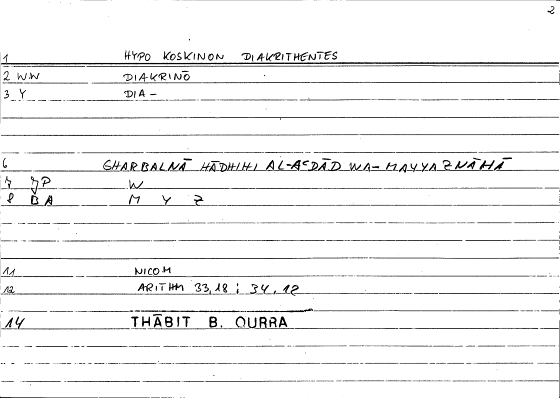 2
1 HYPO KOSKINON DIAKRITHENTES
2 WW DIAKRINŌ
3 Y DIA-
6 GHARBALNĀ HĀDHIHI AL-AᶜDĀD WA-MAYYAZNĀHĀ
7 JP W
8 BA M Y Z
11 NICOM
12 ARITHM 33,18; 34,12
14 THĀBIT B. QURRA